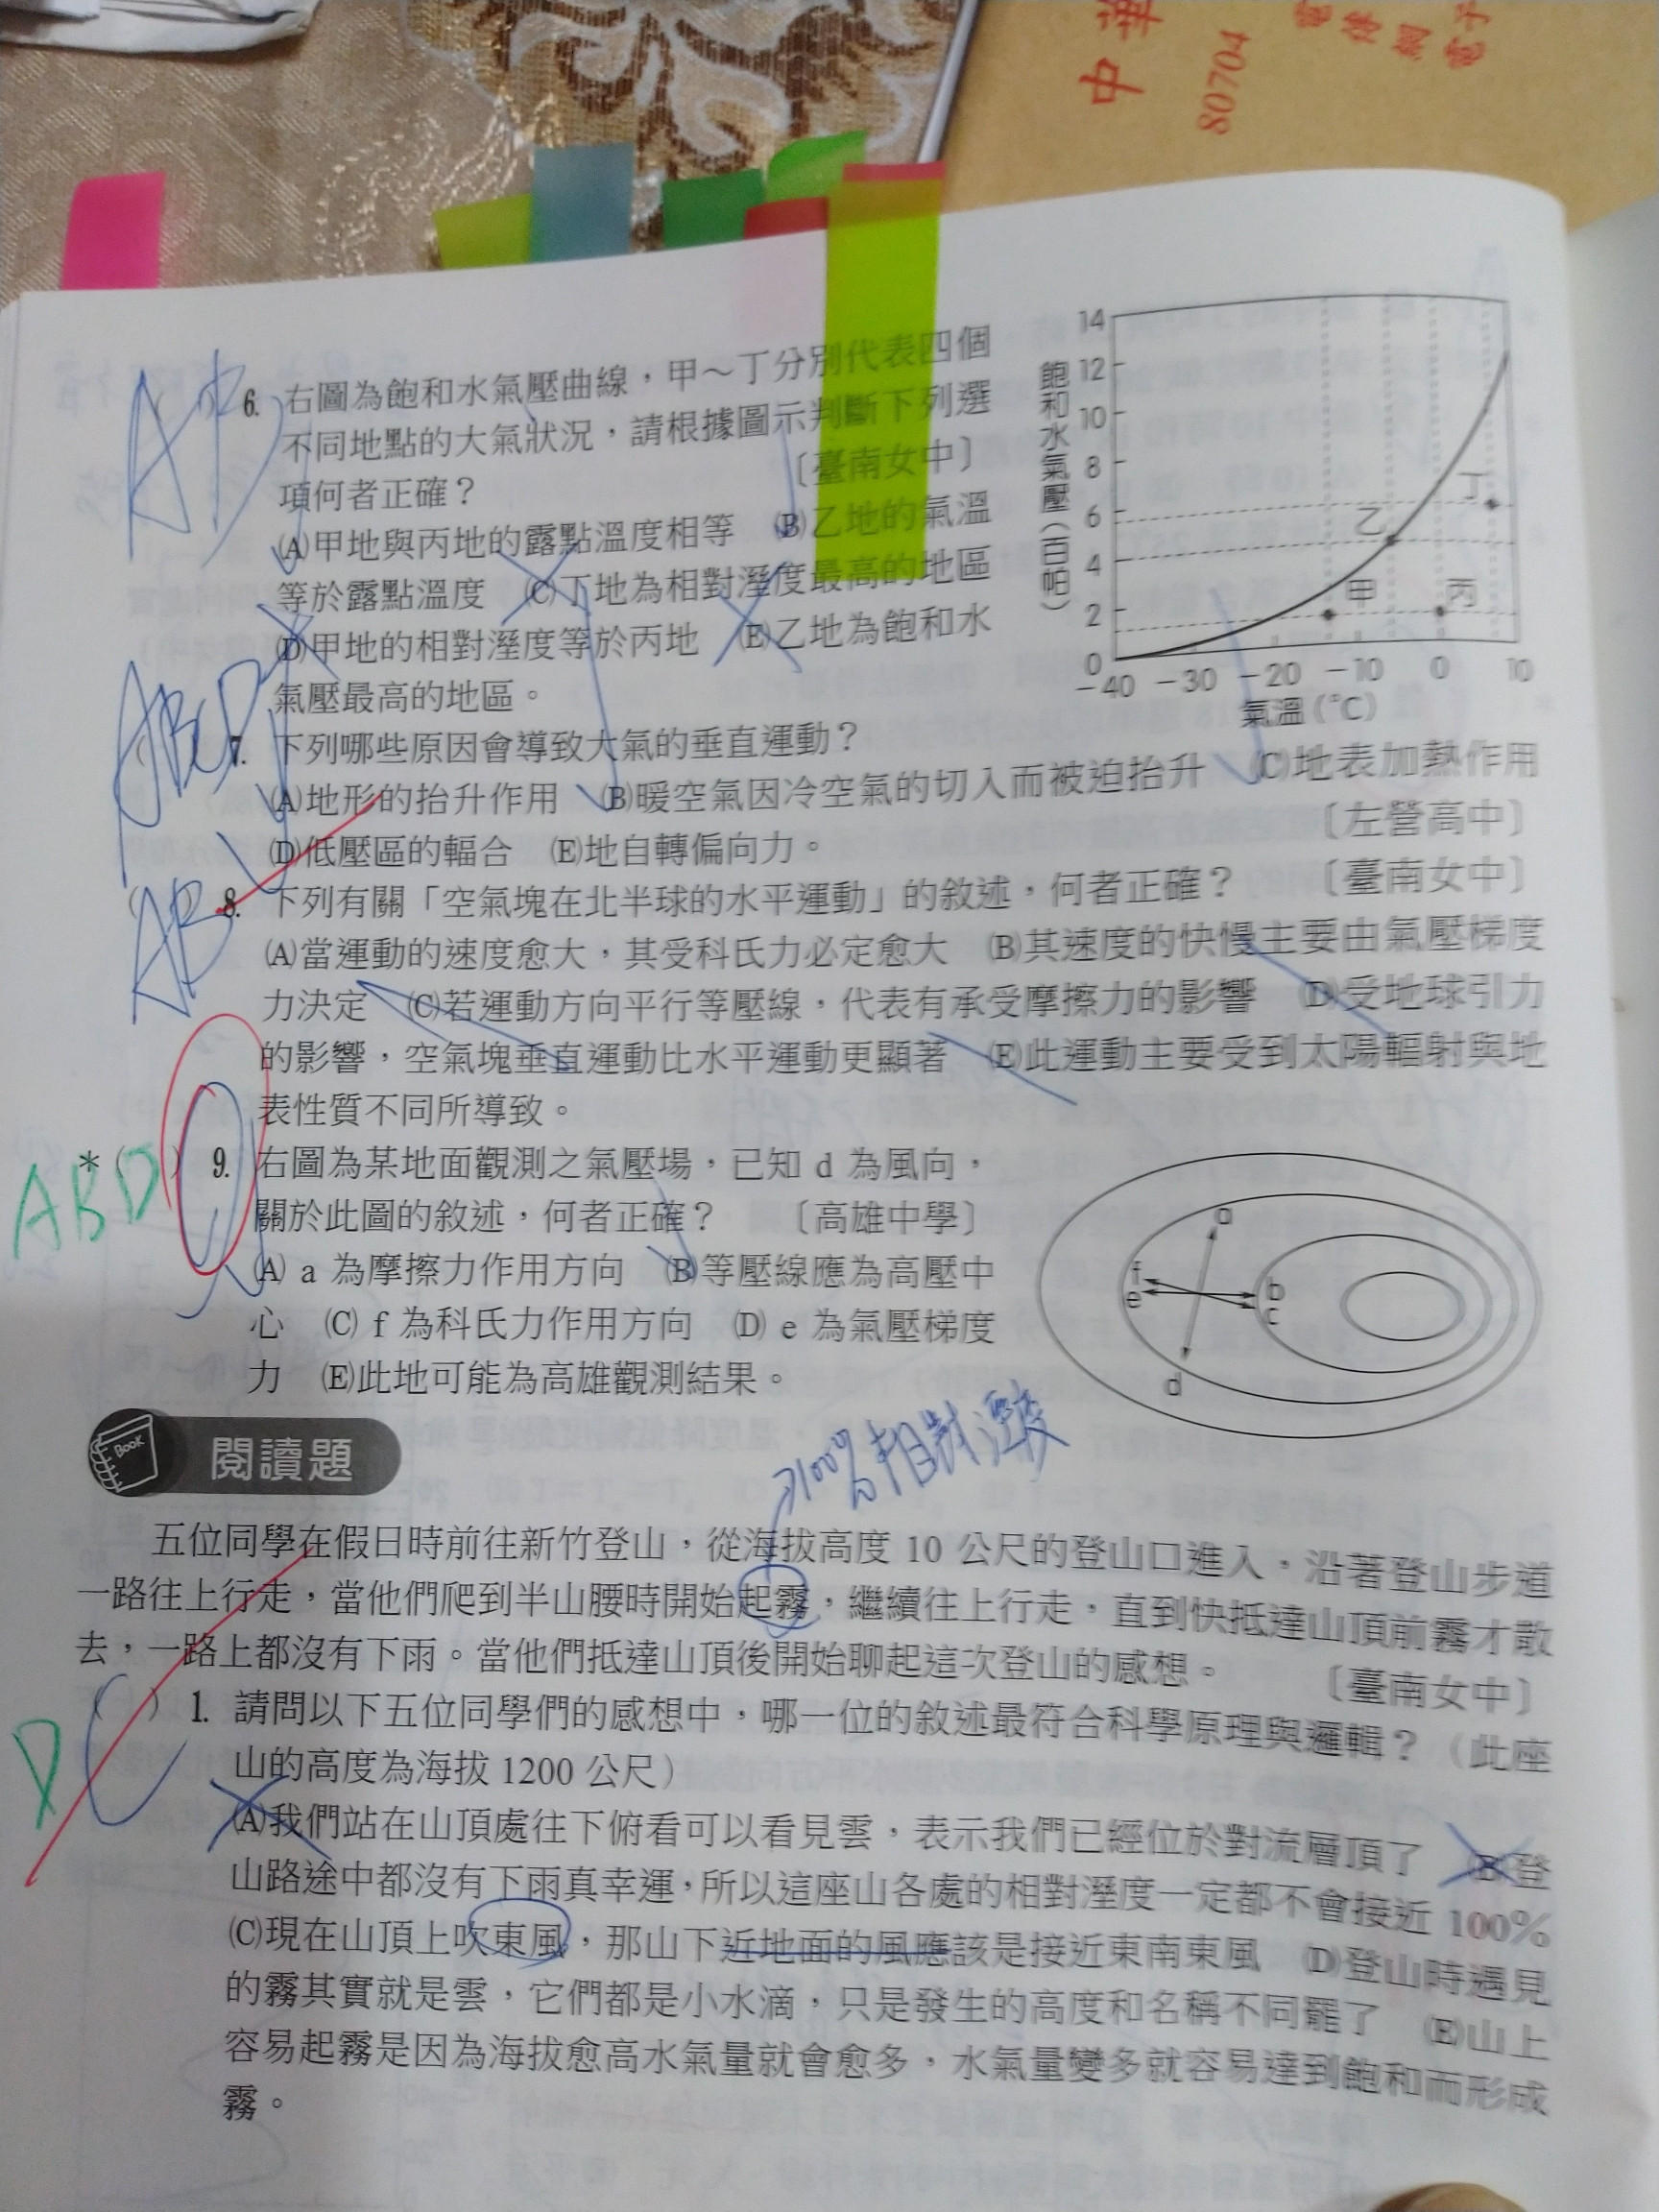 中華
80704
電子
6. 右圖為飽和水氣壓曲線，甲～丁分別代表四個
不同地點的大氣狀況，請根據圖示判斷下列選
項何者正確？〔臺南女中〕
(A)甲地與丙地的露點溫度相等　(B)乙地的氣溫
等於露點溫度　(C)丁地為相對溼度最高的地區
(D)甲地的相對溼度等於丙地　(E)乙地為飽和水
氣壓最高的地區。
飽和水氣壓（百帕）
14
12
10
8
6
4
2
0
丁
乙
甲 丙
－40 －30 －20 －10 0 10
氣溫(°C)
ABCD
7. 下列哪些原因會導致大氣的垂直運動？
(A)地形的抬升作用　(B)暖空氣因冷空氣的切入而被迫抬升　(C)地表加熱作用
(D)低壓區的輻合　(E)地自轉偏向力。〔左營高中〕
AB
8. 下列有關「空氣塊在北半球的水平運動」的敘述，何者正確？〔臺南女中〕
(A)當運動的速度愈大，其受科氏力必定愈大　(B)其速度的快慢主要由氣壓梯度
力決定　(C)若運動方向平行等壓線，代表有承受摩擦力的影響　(D)受地球引力
的影響，空氣塊垂直運動比水平運動更顯著　(E)此運動主要受到太陽輻射與地
表性質不同所導致。
ABD
＊(　) 9. 右圖為某地面觀測之氣壓場，已知 d 為風向，
關於此圖的敘述，何者正確？〔高雄中學〕
(A) a 為摩擦力作用方向　(B)等壓線應為高壓中
心　(C) f 為科氏力作用方向　(D) e 為氣壓梯度
力　(E)此地可能為高雄觀測結果。
a
f b
e c
d
Book 閱讀題
→100%相對溼度
五位同學在假日時前往新竹登山，從海拔高度 10 公尺的登山口進入，沿著登山步道
一路往上行走，當他們爬到半山腰時開始起霧，繼續往上行走，直到快抵達山頂前霧才散
去，一路上都沒有下雨。當他們抵達山頂後開始聊起這次登山的感想。〔臺南女中〕
D C
(　) 1. 請問以下五位同學們的感想中，哪一位的敘述最符合科學原理與邏輯？（此座
山的高度為海拔 1200 公尺）
(A)我們站在山頂處往下俯看可以看見雲，表示我們已經位於對流層頂了　(B)登
山路途中都沒有下雨真幸運，所以這座山各處的相對溼度一定都不會接近 100%
(C)現在山頂上吹東風，那山下近地面的風應該是接近東南東風　(D)登山時遇見
的霧其實就是雲，它們都是小水滴，只是發生的高度和名稱不同罷了　(E)山上
容易起霧是因為海拔愈高水氣量就會愈多，水氣量變多就容易達到飽和而形成
霧。